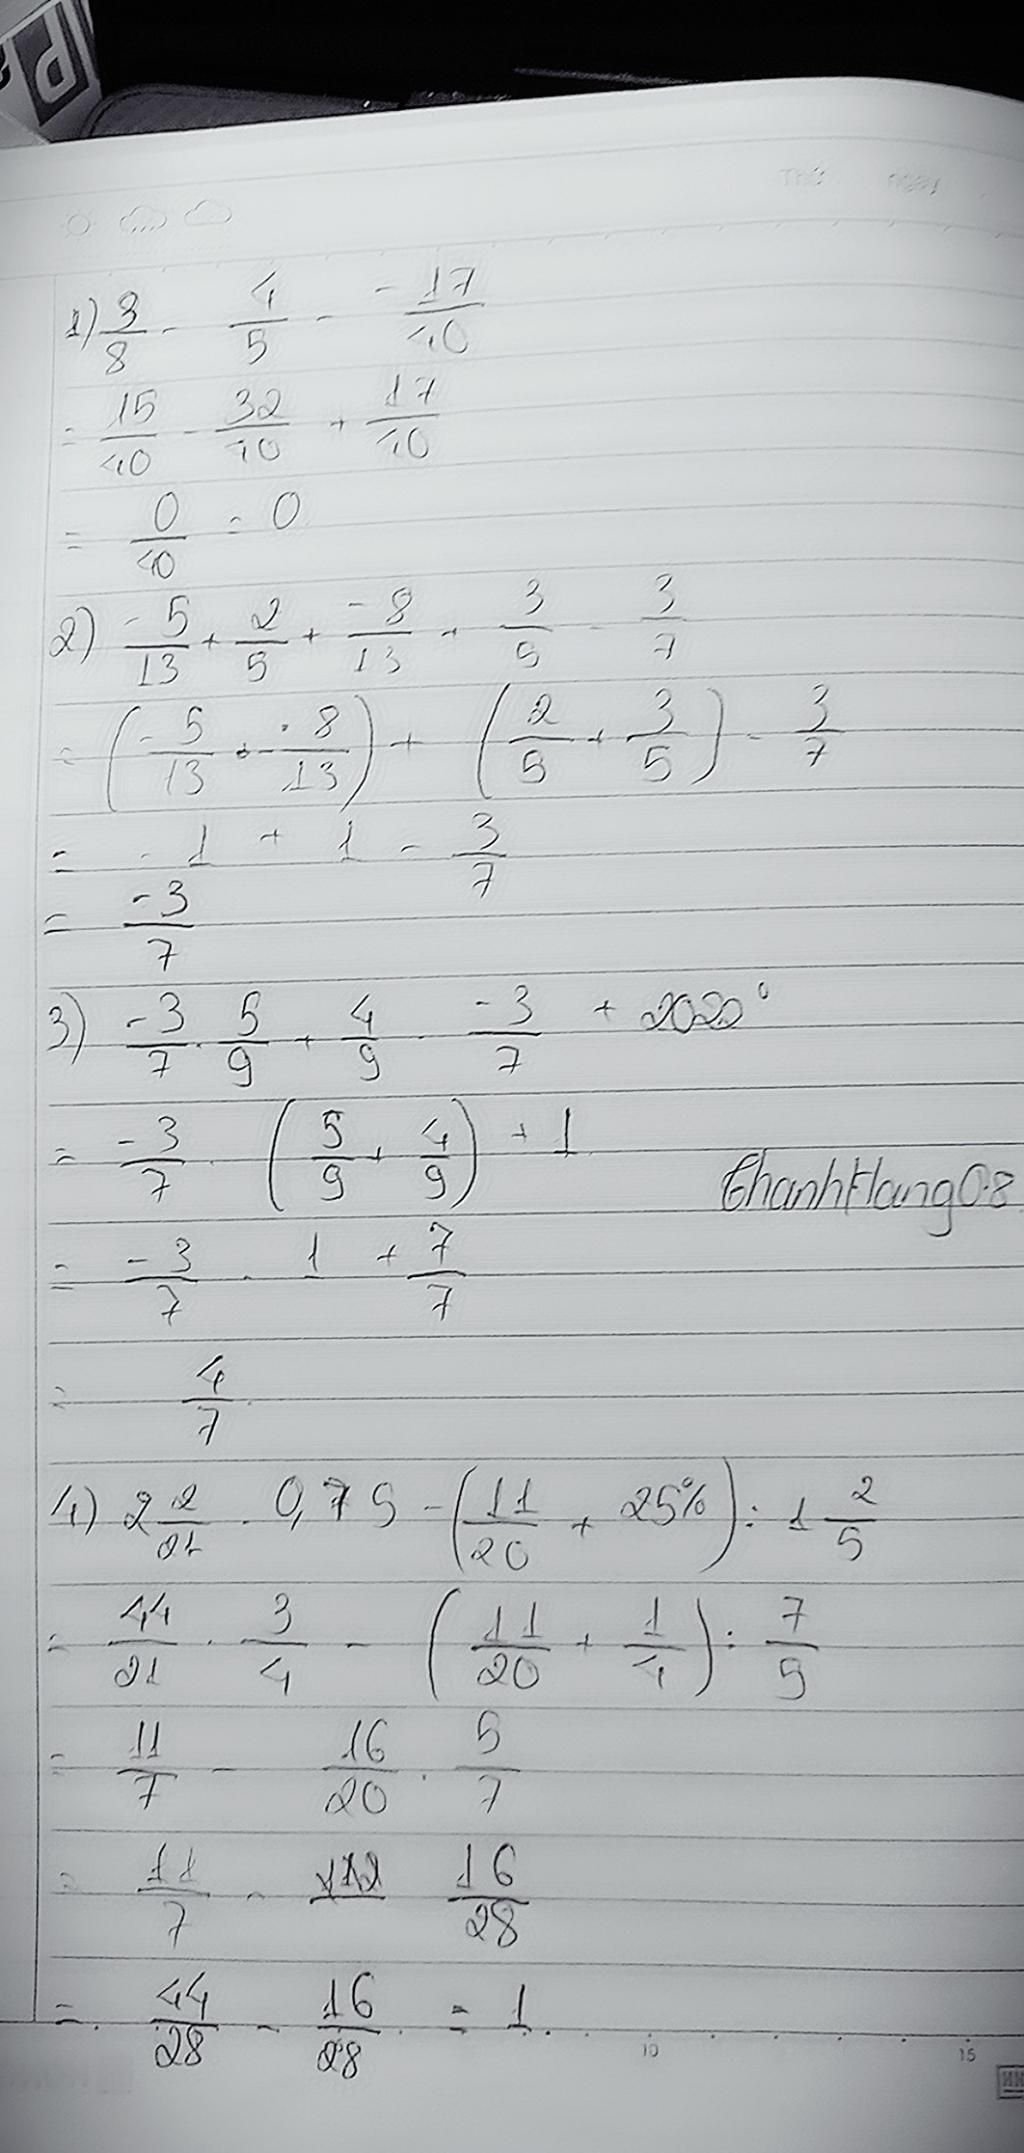 P
Thứ ngày
1) 3/8 - 4/5 - -17/40
= 15/40 - 32/40 + 17/40
= 0/40 = 0
2) -5/13 + 2/5 + -8/13 + 3/5 - 3/7
= (-5/13 + -8/13) + (2/5 + 3/5) - 3/7
= -1 + 1 - 3/7
= -3/7
3) -3/7 . 5/9 + 4/9 . -3/7 + 2020⁰
= -3/7 . (5/9 + 4/9) + 1
ThanhHang08
= -3/7 . 1 + 7/7
= 4/7
4) 2 2/21 . 0,75 - (11/20 + 25%) : 1 2/5
= 44/21 . 3/4 - (11/20 + 1/4) : 7/5
= 11/7 - 16/20 . 5/7
= 11/7 - 16/28
= 44/28 - 16/28 = 1.
10 15